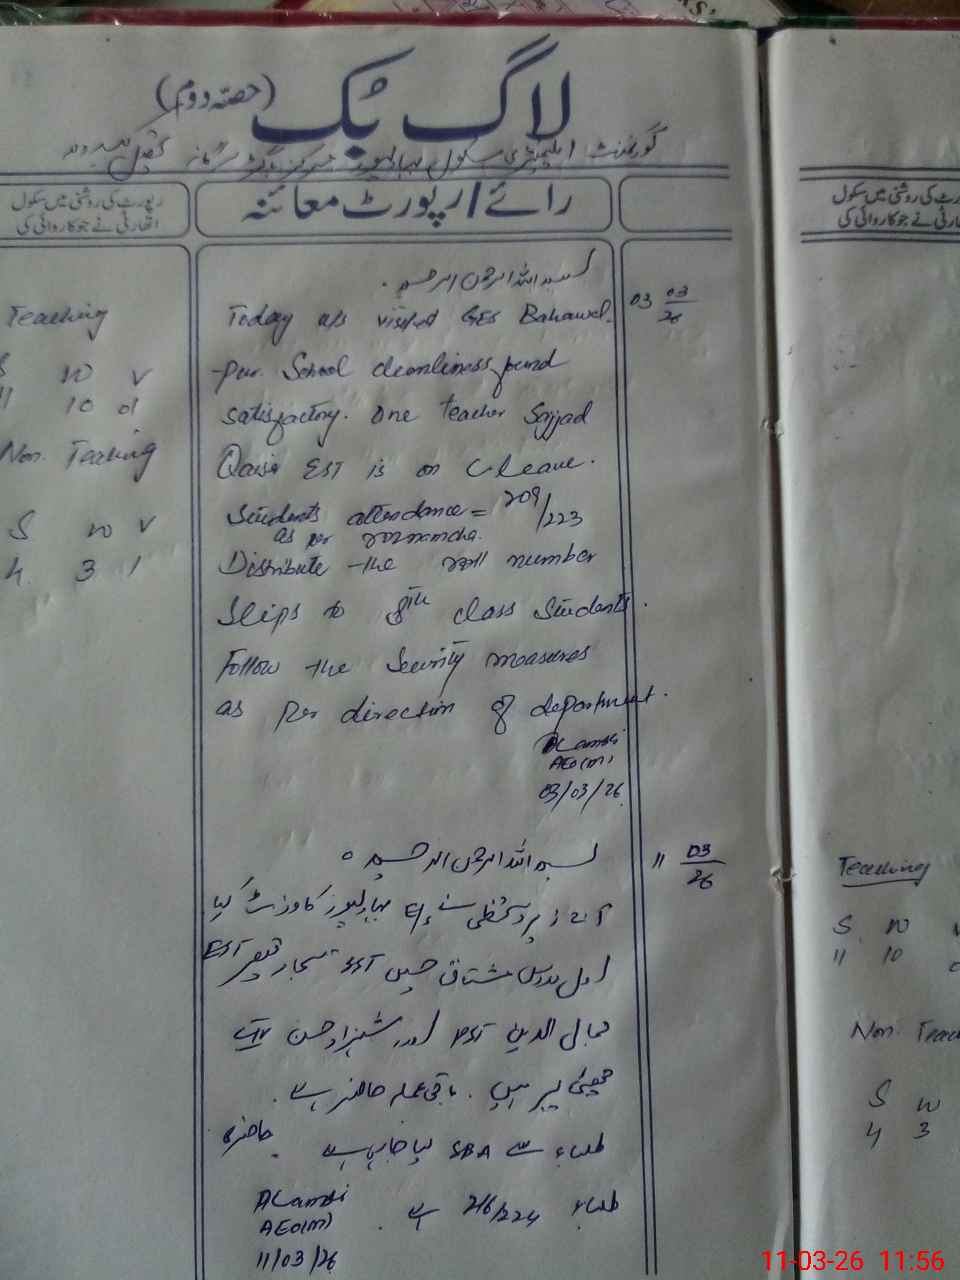 لاگ بک (حصّہ دوم)
گورنمنٹ ایلیمنٹری سکول بہاولپور
رائے/رپورٹ معائنہ
رپورٹ کی روشنی میں سکول
اتھارٹی نے جو کاروائی کی
بسم اللہ الرحمن الرحیم
03 03/26
Today u/s visited GES Bahawal-
-pur. School cleanliness found
satisfactory. One teacher Sajjad
Qaisar EST is on C leave.
Students attendance = 209/223
as per roznamcha.
Distribute the roll number
Slips to 8th class students.
Follow the Security measures
as per direction of department.
AEO(M)
03/03/26
Teaching
S W V
11 10 01
Non Teaching
S W V
4 3 1
بسم اللہ الرحمن الرحیم
11 03/26
آج زیر دستخطی نے E/S بہاولپور کا وزٹ کیا
اول مدرس مشتاق حسین SST سجاد قیصر EST
جمال الدین PST اور شہزاد حسن
چھٹی پر ہیں۔ باقی عملہ حاضر ہے۔
طلباء سے SBA لیا جا رہا ہے۔ حاضرہ
طلباء 216/224 ہے۔
AEO(M)
11/03/26
رپورٹ کی روشنی میں سکول
اتھارٹی نے جو کاروائی کی
Teaching
S W
11 10
Non Teach
S W
4 3
11-03-26 11:56